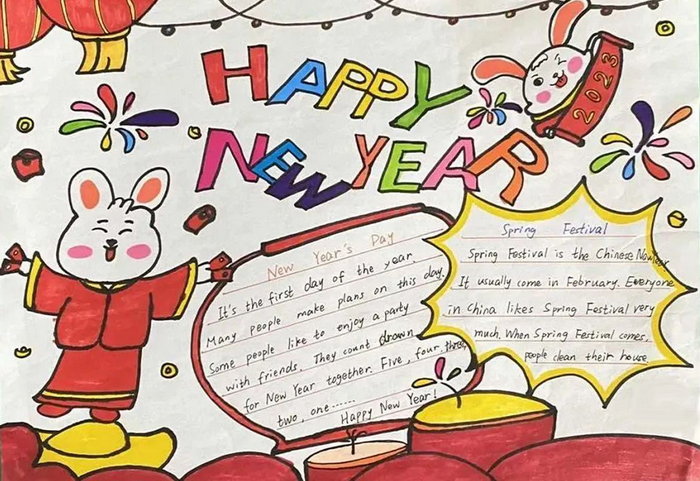 HAPPY
NEW YEAR
2023
New Year's Day
It's the first day of the year
Many people make plans on this day.
Some people like to enjoy a party
with friends. They count drown
for New Year together. Five, four, three,
two, one......
Happy New Year!
Spring Festival
Spring Festival is the Chinese New
It usually come in February. Everyone
in China likes Spring Festival very
much. When Spring Festival comes,
people clean their house.